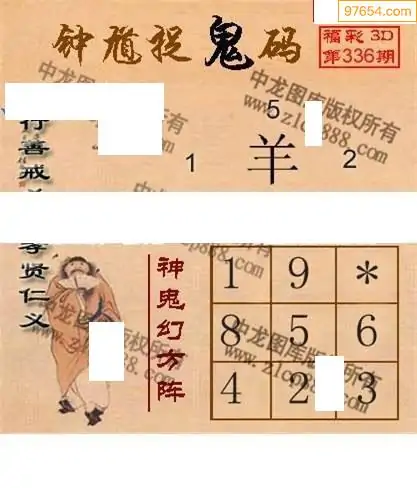 97654.com
钟馗捉鬼码
福彩3D
第336期
中龙图库版权所有
www.zlcp888.com
行善戒
5
1 羊 2
孝贤仁义
神鬼幻方阵
1 9 *
8 5 6
4 2 3
中龙图库版权所有
www.zlcp888.com